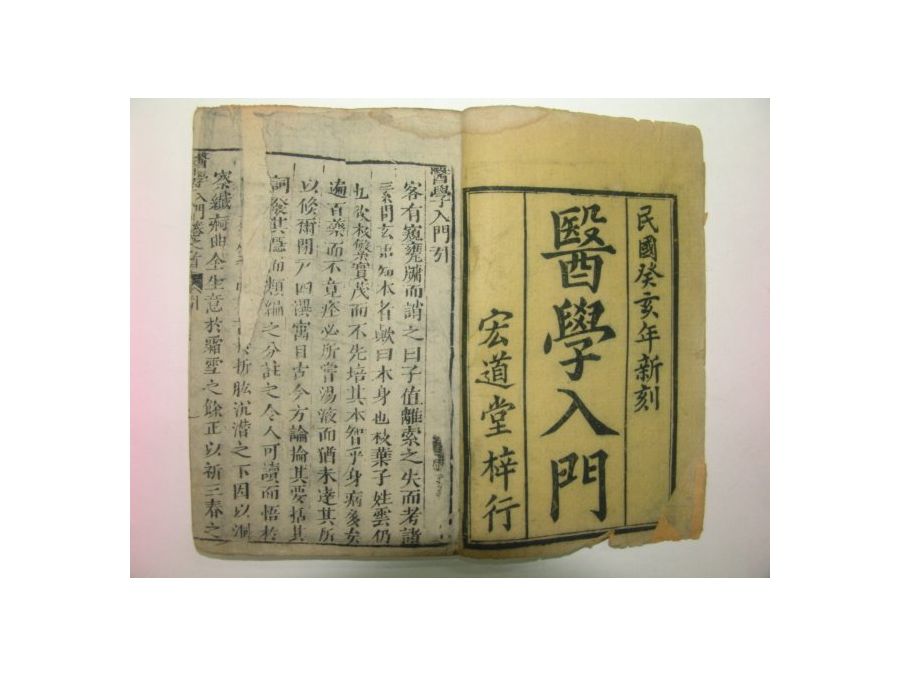 民國癸亥年新刻
醫學入門
宏道堂梓行
醫學入門引
客有窺甕牖而誚之曰子值離索之失而考諸
素問玄 知本者歟曰木身也枝葉子姓雲仍
也欲枝繁實茂而不先培其本智乎身病多矣
遍百藥而不竟痊必所嘗湯液而猶未達其所
以候爾閉戶四 寓目古今方論掄其要括其
詞發其隱而類編之分註之令人可讀而悟於
折肱沉潛之下因以洞
察纖痾曲全生意於霜雪之餘正以祈三春之
醫學入門卷之首